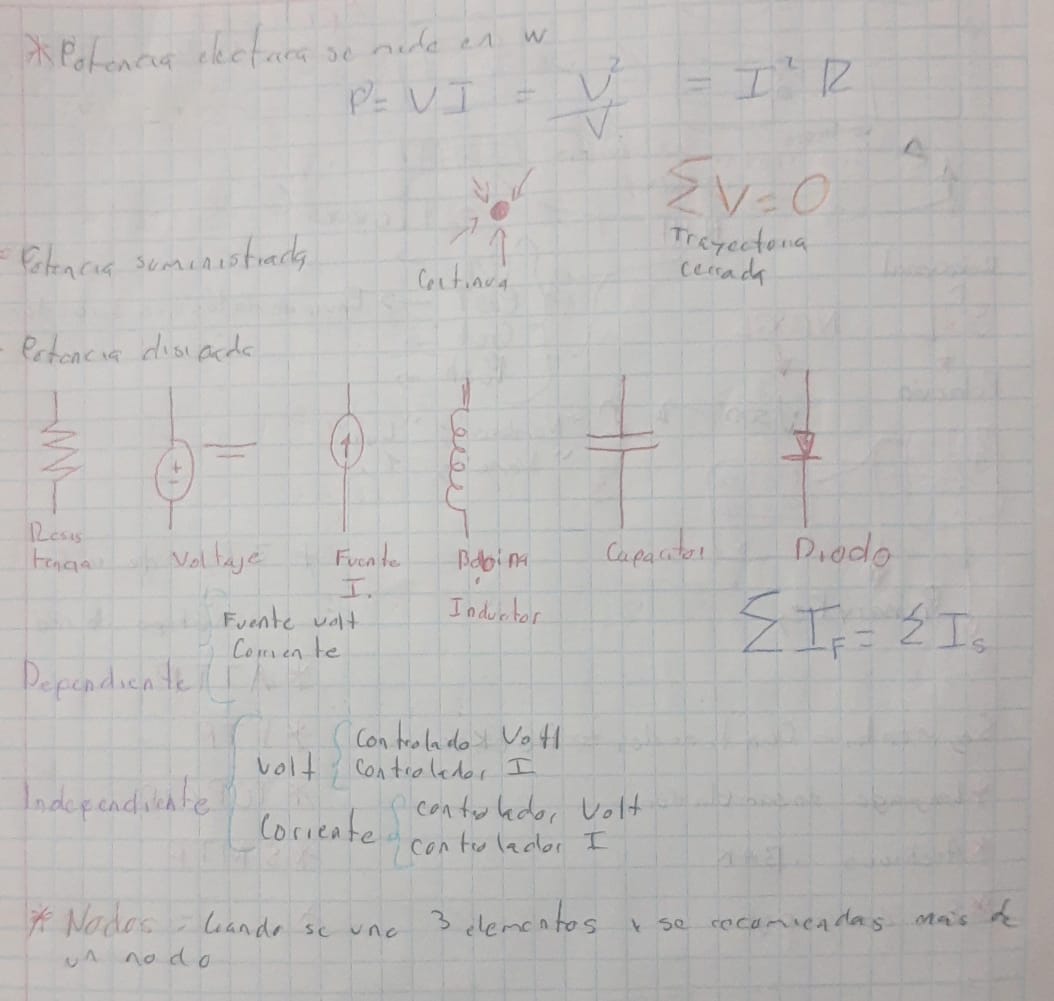 * Potencia electara se mide en W
P = VI = V² / V = I² R
ΣV = 0
Trayectoria
cerrada
- Potencia suministrada
- Potencia disiada
Resis
tencia
Voltaje
Fuente
I.
Bobina
Inductor
Capacitor
Diodo
Fuente volt
Corriente
Σ I_F = Σ I_s
Dependiente
Controlado x Volt
Volt
Controlador I
Independiente
controlador Volt
Corriente
controlador I
* Nodos - Cuando se une 3 elementos y se recomiendas mais de
un nodo